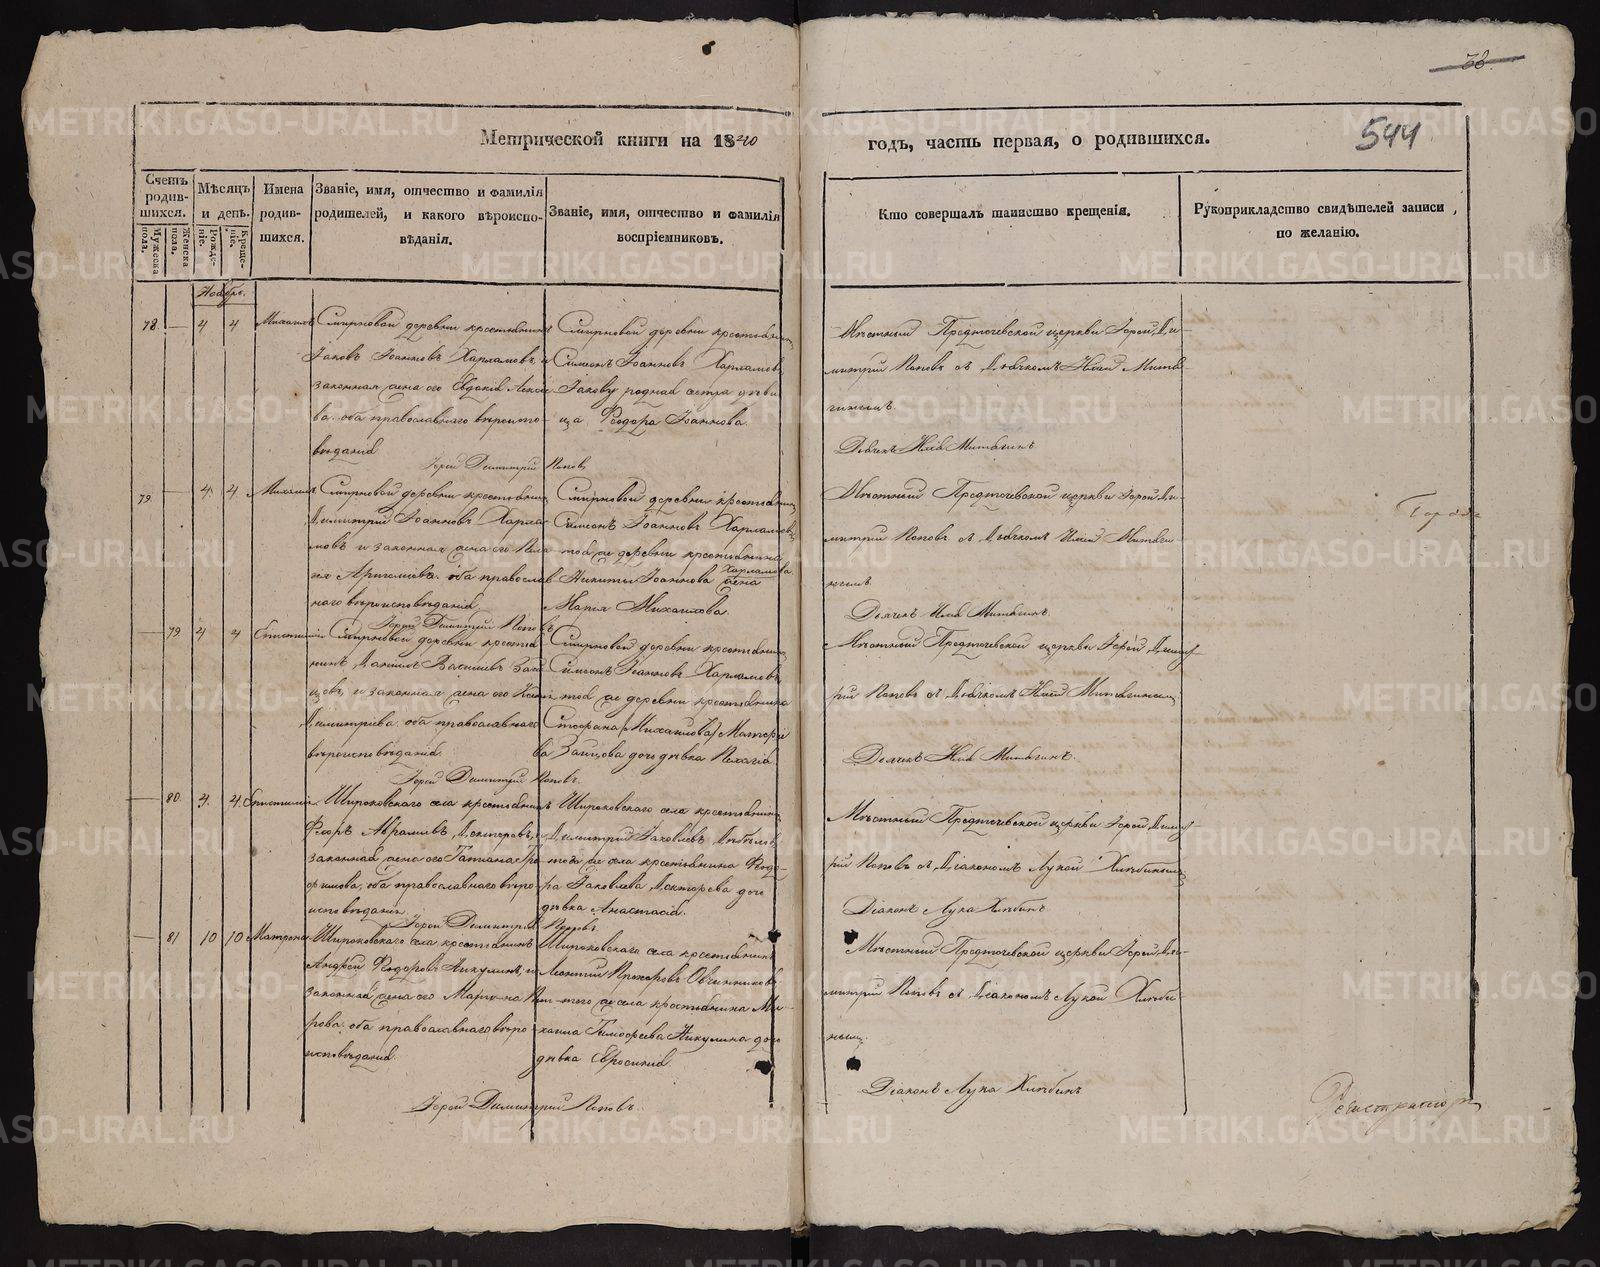 38.
544
Метрической книги на 1840
годъ, часть первая, о родившихся.
Счетъ родив-шихся.
Мужеска пола.
Женска пола.
Мѣсяцъ и день.
Рожде-ніе.
Креще-ніе.
Имена родив-шихся.
Званіе, имя, отчество и фамилія
родителей, и какого вѣроиспо-
вѣданія.
Званіе, имя, отчество и фамилія
воспріемниковъ.
Кто совершалъ таинство крещенія.
Рукоприкладство свидѣтелей записи
по желанію.
Ноябрь.
78. — 4 4 Михаилъ
Смирновой деревни крестьянинъ
Іаковъ Іоанновъ Харламовъ, и
законная жена его Евдокія Алексіе
ва, оба православнаго вѣроиспо-
вѣданія
Смирновой деревни крестьянинъ
Симеонъ Іоанновъ Харламовъ,
Іакову родная сестра дѣви
ца Ѳеодора Іоаннова.
Мѣстный Предтечевской церкви Іерей Ди-
митрій Поповъ съ Дьячкомъ Иліей Митя-
гинымъ.
Дьячекъ Илія Митягинъ
Іерей Димитрій Поповъ
79. — 4. 4 Михаилъ
Смирновой деревни крестьянинъ
Димитрій Іоанновъ Харла-
мовъ и законная жена его Пела
оба православ
наго вѣроисповѣданія
Смирновой деревни крестьянинъ
Симеонъ Іоанновъ Харламовъ,
той же деревни крестьянина
Никиты Іоаннова Харламова жена
Марія Михаилова.
Мѣстный Предтечевской церкви Іерей Ди-
митрій Поповъ съ Дьячкомъ Иліей Митяги-
нымъ.
Дьячекъ Илія Митягинъ.
Іерей Димитрій Поповъ
— 79. 4 4
Смирновой деревни крестья
нинъ Даніилъ Василіевъ Заи
цовъ, и законная жена его
Димитріева, оба православнаго
вѣроисповѣданія
Смирновой деревни крестьянинъ
Симеонъ Іоанновъ Харламовъ
той же деревни крестьянина
Стефана Михаилова
Заицова дочь дѣвка Пелагія.
Мѣстный Предтечевской церкви Іерей Димит
рій Поповъ съ Дьячкомъ Иліей Митягинымъ
Дьячекъ Илія Митягинъ.
Іерей Димитрій Поповъ.
— 80. 4. 4.
Широковскаго села крестьянинъ
Флоръ Аврамовъ Дектеревъ, и
законная жена его Татіана Тро
фимова, оба православнаго вѣро-
исповѣданія
Широковскаго села крестьянинъ
Димитрій Іаковлевъ
того же села крестьянина Ѳеодо-
ра Іаковлева Дектерева дочь
дѣвка Анастасія.
Мѣстный Предтечевской церкви Іерей Димит
рій Поповъ съ Діакономъ Лукой Хлѣбинымъ
Діаконъ Лука Хлѣбинъ
Іерей Димитрій Поповъ.
— 81 10 10 Матрона
Широковскаго села крестьянинъ
Андрей Ѳеодоровъ Никулинъ, и
законная жена его
рова оба православнаго вѣро-
исповѣданія.
Широковскаго села крестьянинъ
Леонтій Прохоровъ Овчинниковъ,
того же села крестьянина Ми-
хаила Тимоѳеева Никулина дочь
дѣвка Евросинія.
Мѣстный Предтечевской церкви Іерей Ди-
митрій Поповъ съ Діакономъ Лукой Хлѣби-
нымъ.
Діаконъ Лука Хлѣбинъ
Іерей Димитрій Поповъ.
Регистраторъ
METRIKI.GASO-URAL.RU